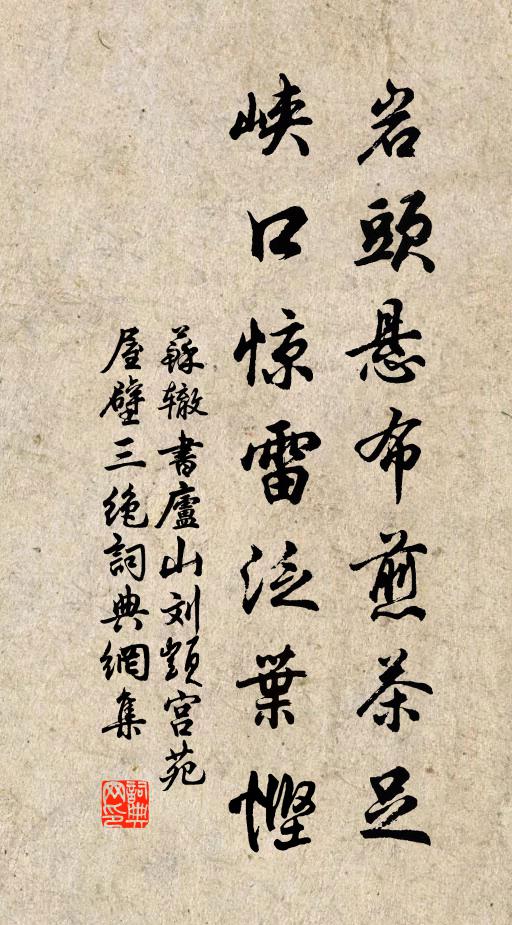 岩頭悬布煎茶足
峡口惊雷泛葉悭
蘇辙書廬山刘顗宫苑
屋壁三绝詞典網集
詞典网印